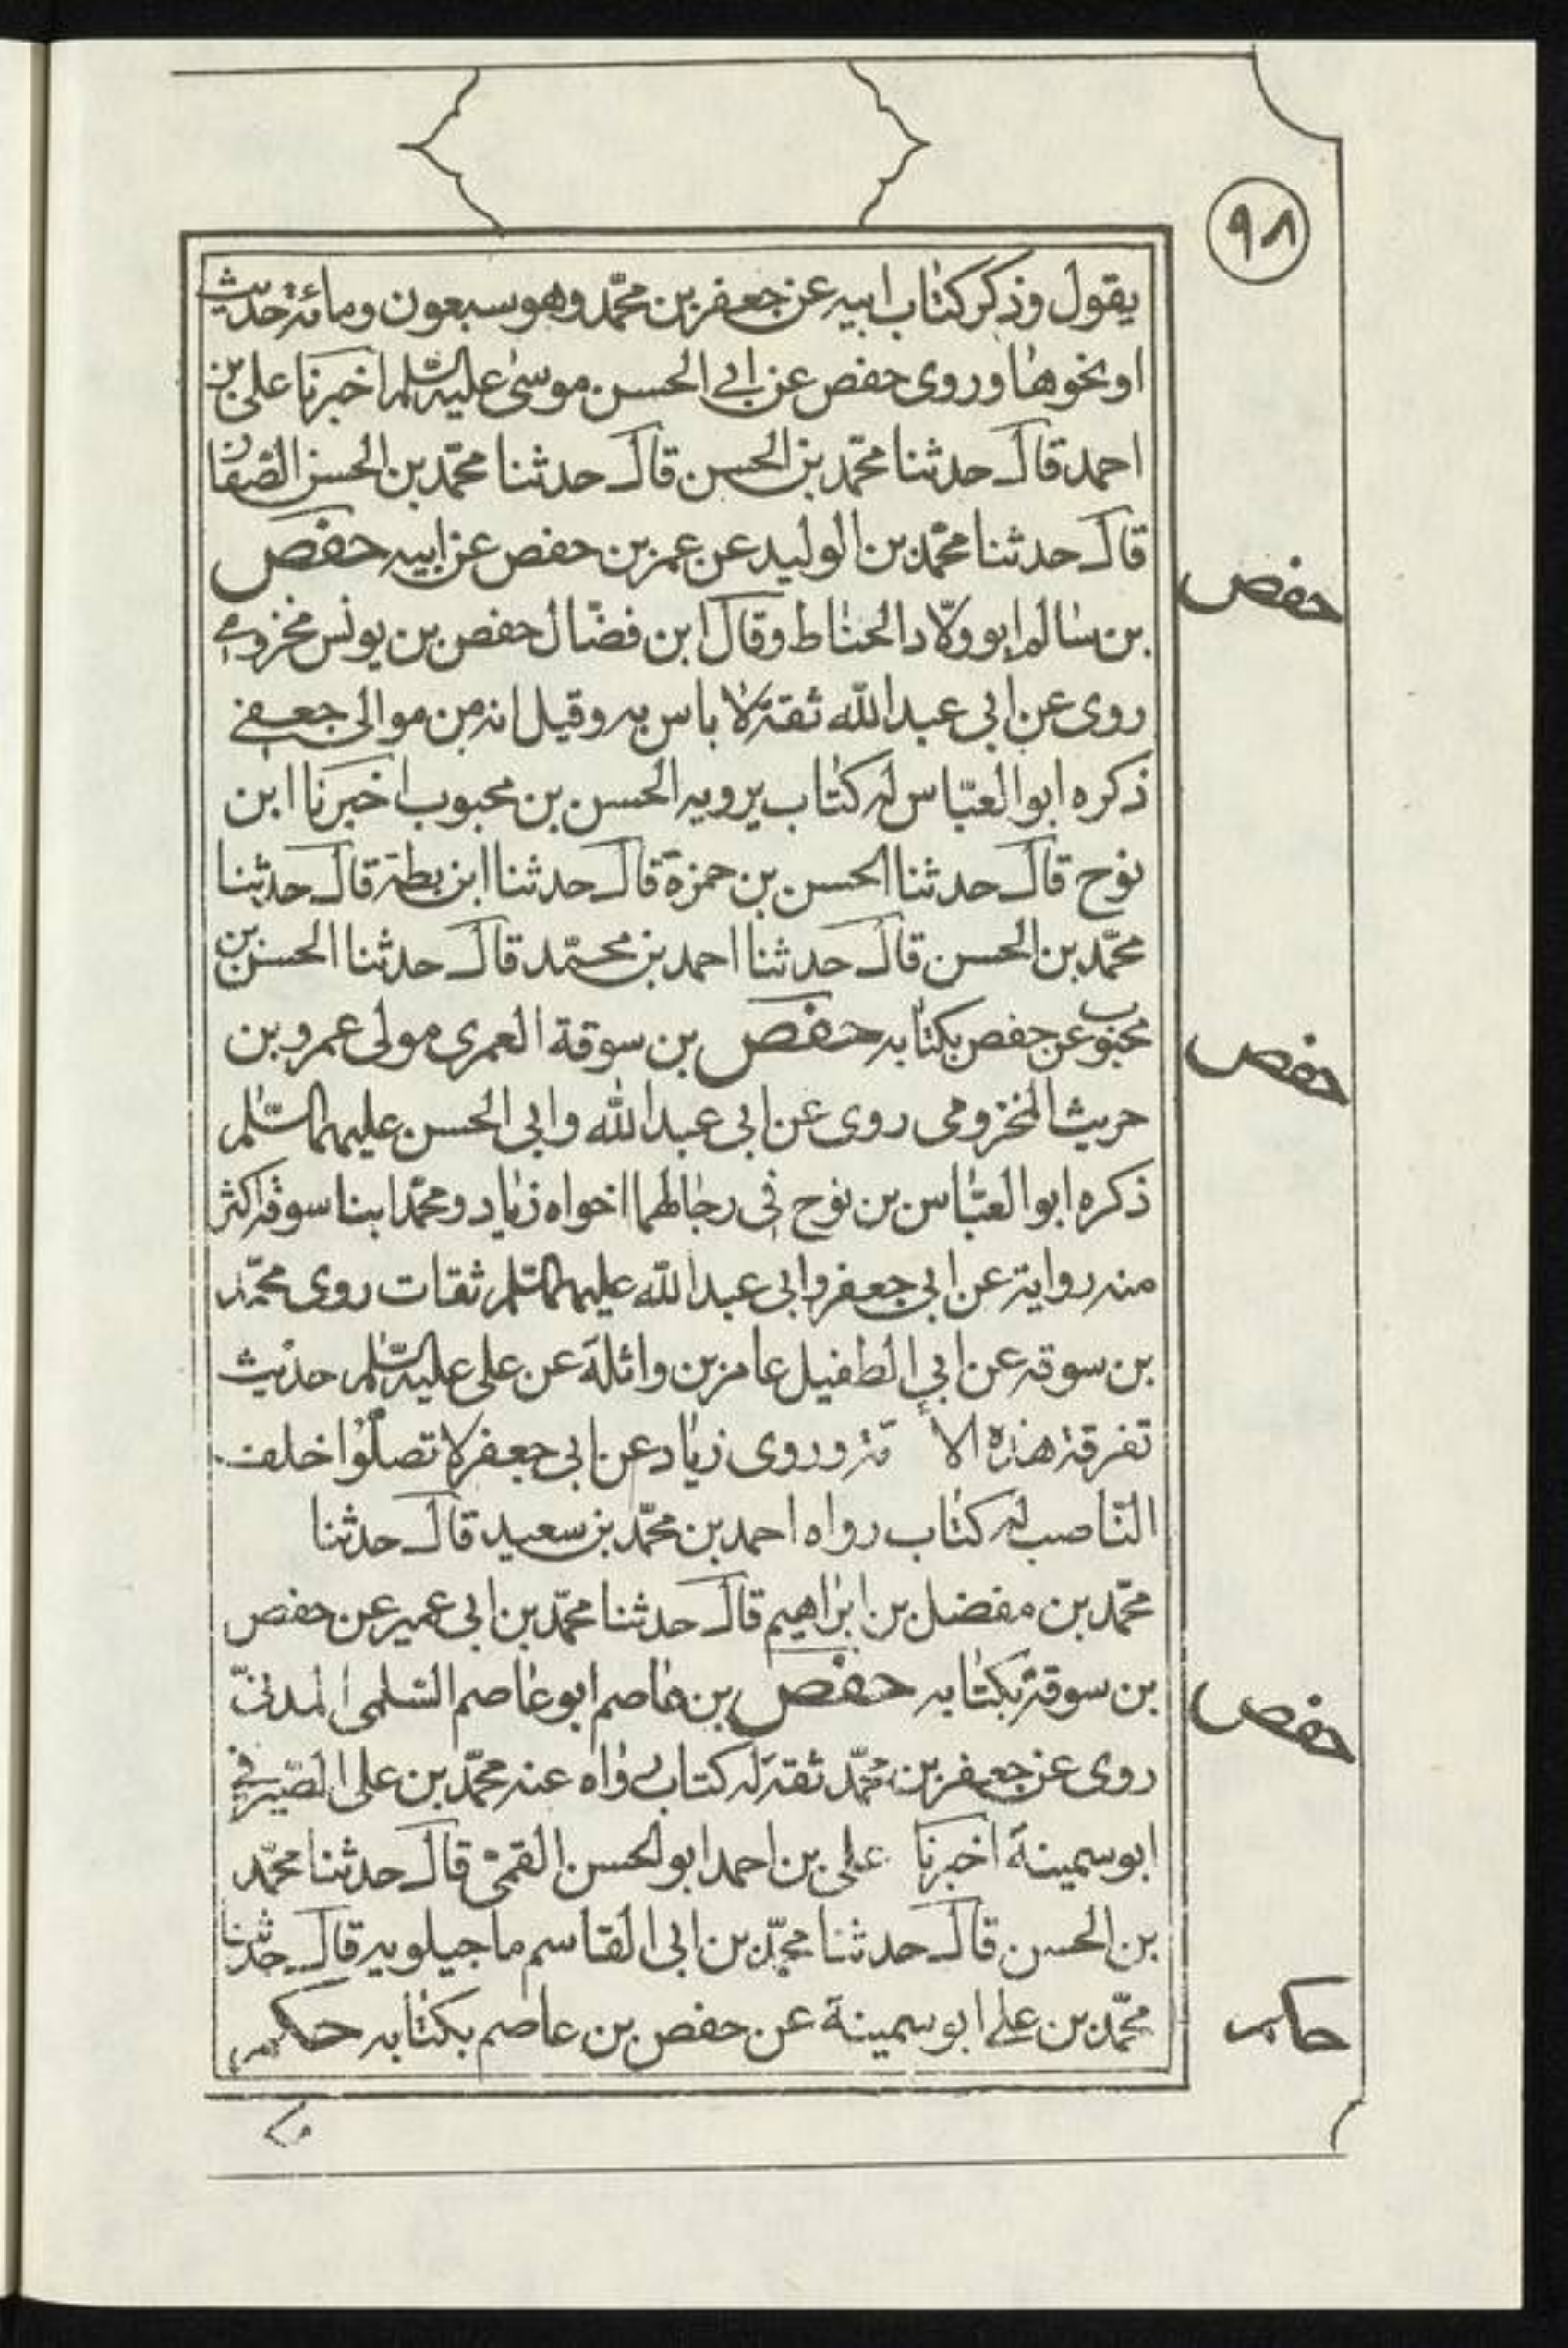 ٩٨
يقول وذكر كتاب ابيه عن جعفر بن محمّد وهو سبعون ومائة حديث
او نحوها وروى حفص عن ابي الحسن موسى عليه السّلم اخبرنا على بن
احمد قال حدثنا محمّد بن الحسن قال حدثنا محمّد بن الحسن الصّفار
قال حدثنا محمّد بن الوليد عن عمر بن حفص عن ابيه حفص
حفص
بن سالم ابو ولّاد الحناط وقال ابن فضّال حفص بن يونس مخزومي
روى عن ابي عبد الله ثقة لا باس به وقيل انه من موالى جعفي
ذكره ابو العبّاس له كتاب يرويه الحسن بن محبوب اخبرنا ابن
نوح قال حدثنا الحسن بن حمزة قال حدثنا ابن بطة قال حدثنا
محمّد بن الحسن قال حدثنا احمد بن محمّد قال حدثنا الحسن بن
محبوب عن حفص بكتابه حفص بن سوقة العمرى مولى عمرو بن
حفص
حريث المخزومى روى عن ابي عبد الله وابي الحسن عليهما السّلم
ذكره ابو العبّاس بن نوح في رجالهما اخواه زياد ومحمّد ابنا سوقة اكثر
منه رواية عن ابي جعفر وابي عبد الله عليهما السّلم ثقات روى محمّد
بن سوقه عن ابي الطفيل عامر بن واثلة عن على عليه السّلم حديث
تفرقة هذه الأ مّة وروى زياد عن ابي جعفر لا تصلّوا خلف
النّاصب له كتاب رواه احمد بن محمّد بن سعيد قال حدثنا
محمّد بن مفضل بن ابراهيم قال حدثنا محمّد بن ابي عمير عن حفص
بن سوقة بكتابه حفص بن عاصم ابو عاصم السّلمى المدنيّ
حفص
روى عن جعفر بن محمّد ثقة له كتاب رواه عنه محمّد بن على الصّيرفي
ابو سمينة اخبرنا على بن احمد ابو الحسن القمّى قال حدثنا محمّد
بن الحسن قال حدثنا محمّد بن ابي القاسم ماجيلويه قال حدثنا
محمّد بن على ابو سمينة عن حفص بن عاصم بكتابه حكم
حكم